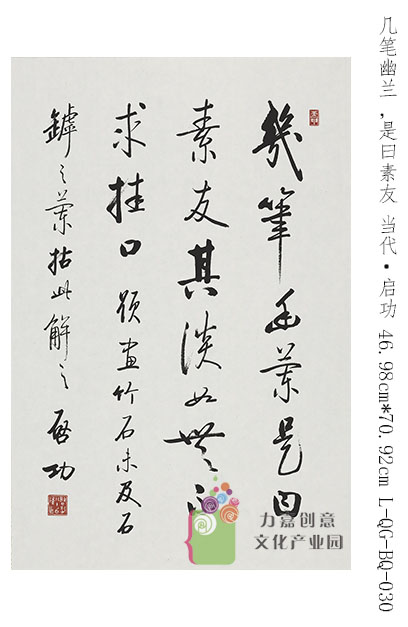 几笔幽兰,是曰素友 当代·启功 46.98cm*70.92cm L-QG-BQ-030
幾筆幽蘭是曰
素友其淡如無
求挂口 題畫竹石未及石
罅之蘭拈此解之 啓功
力嘉创意
文化产业园